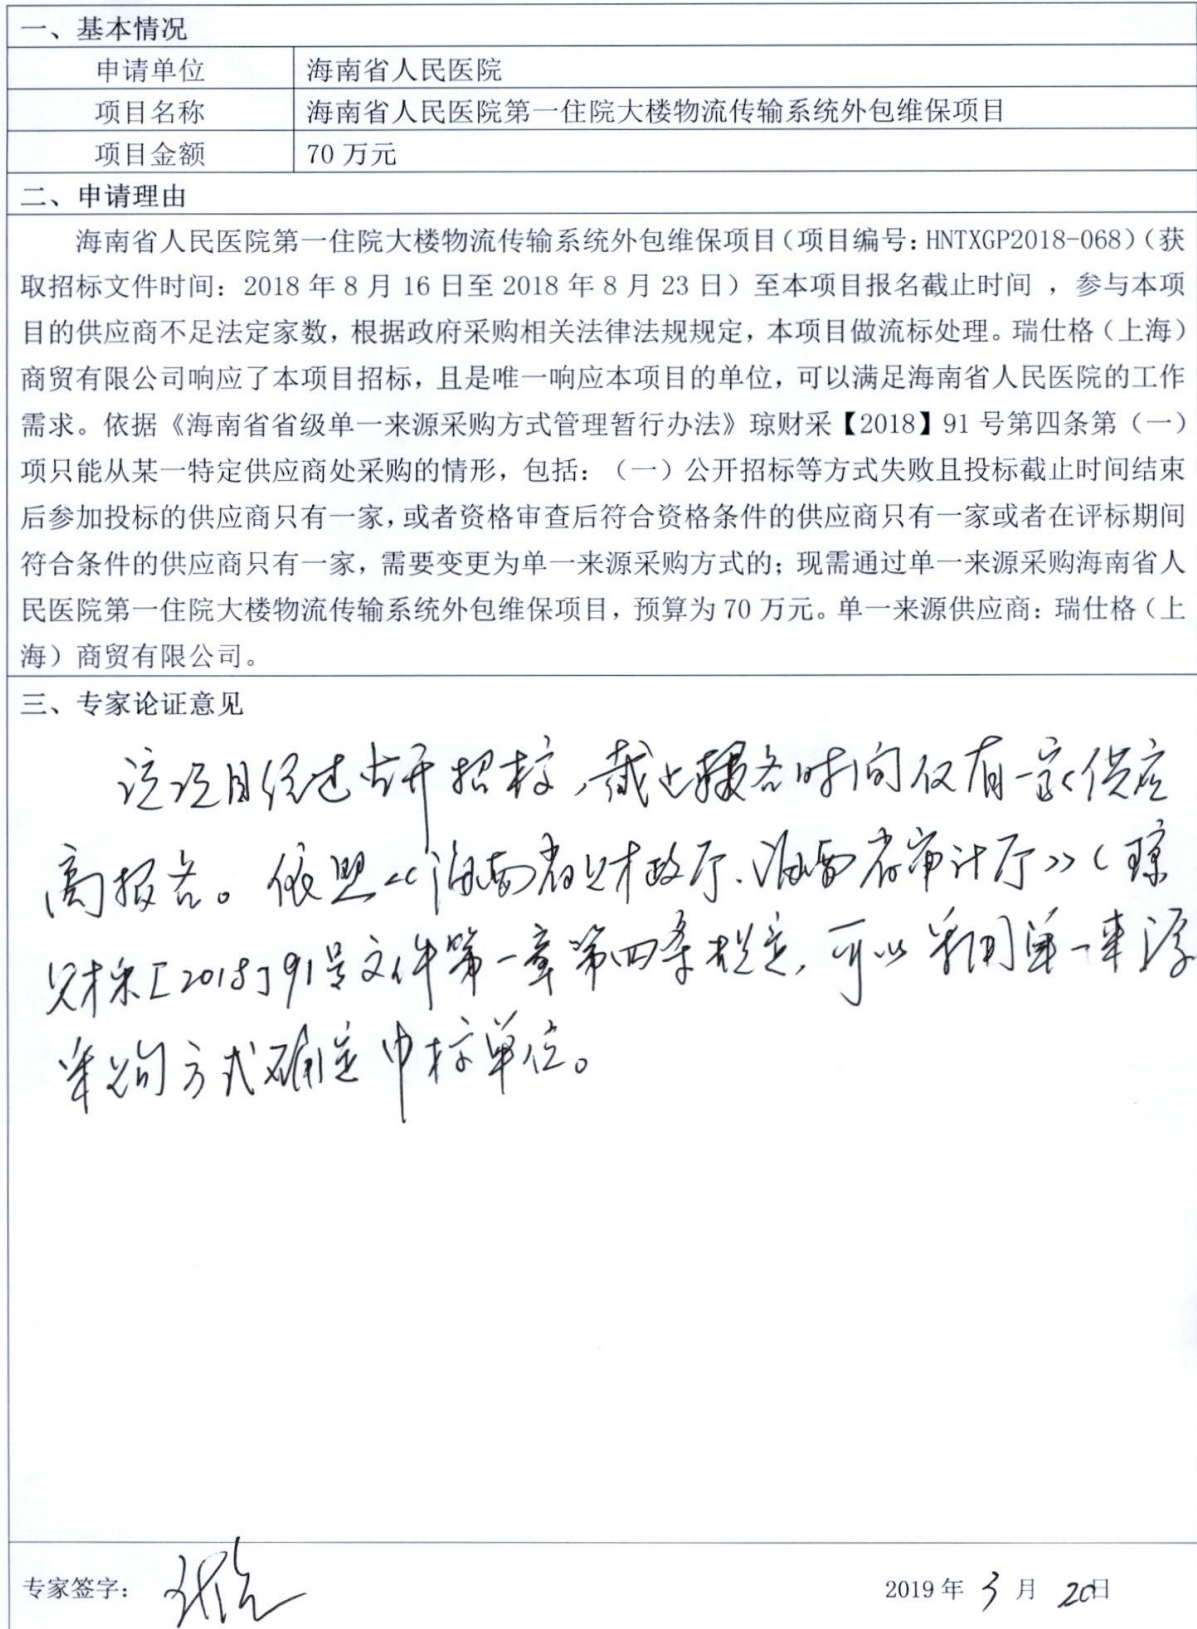 一、基本情况
申请单位 海南省人民医院
项目名称 海南省人民医院第一住院大楼物流传输系统外包维保项目
项目金额 70 万元
二、申请理由
海南省人民医院第一住院大楼物流传输系统外包维保项目（项目编号：HNTXGP2018-068）（获
取招标文件时间：2018 年 8 月 16 日至 2018 年 8 月 23 日）至本项目报名截止时间 ，参与本项
目的供应商不足法定家数，根据政府采购相关法律法规规定，本项目做流标处理。瑞仕格（上海）
商贸有限公司响应了本项目招标，且是唯一响应本项目的单位，可以满足海南省人民医院的工作
需求。依据《海南省省级单一来源采购方式管理暂行办法》琼财采【2018】91 号第四条第（一）
项只能从某一特定供应商处采购的情形，包括：（一）公开招标等方式失败且投标截止时间结束
后参加投标的供应商只有一家，或者资格审查后符合资格条件的供应商只有一家或者在评标期间
符合条件的供应商只有一家，需要变更为单一来源采购方式的；现需通过单一来源采购海南省人
民医院第一住院大楼物流传输系统外包维保项目，预算为 70 万元。单一来源供应商：瑞仕格（上
海）商贸有限公司。
三、专家论证意见
该项目经过公开招标，截止报名时间仅有一家供应
商报名。依照《海南省财政厅、海南省审计厅》（琼
财采[2018]91号文件第一章第四条规定，可以采用单一来源
采购方式确定中标单位。
专家签字： 2019 年 3 月 20日